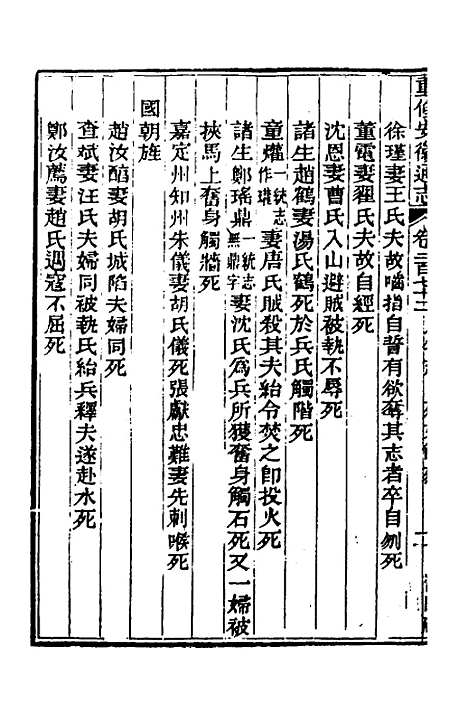 重修安徽通志 卷二百
徐瑾妻王氏夫故嚙指自誓有欲奪其志者卒自刎死
董電妻翟氏夫故自經死
沈恩妻曹氏入山避賊被執不辱死
諸生趙鶴妻湯氏鶴死於兵氏觸階死
童爟一統志作瓘妻唐氏賊殺其夫紿令焚之卽投火死
諸生鄭瑤鼎一統志無鼎字妻沈氏爲兵所獲奮身觸石死又一婦被
挾馬上奮身觸牆死
嘉定州知州朱儀妻胡氏儀死張獻忠難妻先刺喉死
國朝旌
趙汝醕妻胡氏城陷夫婦同死
查斌妻汪氏夫婦同被執氏紿兵釋夫遂赴水死
鄭汝薦妻趙氏遇寇不屈死